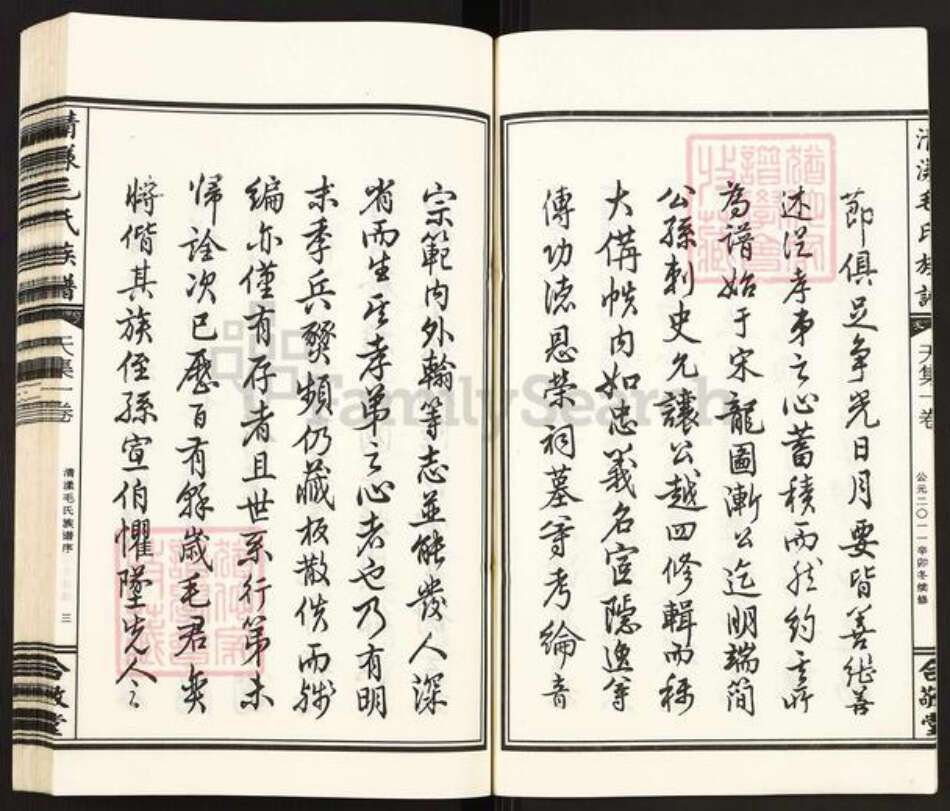 清漾毛氏族譜
天集一卷
公元二〇一一辛卯冬续修
合敬堂
節俱足争光日月要皆善繼善
述从孝弟之心蓄積而然約言所
為譜始于宋龍圖漸公迄明端簡
公孫刺史允讓公越四修輯而稱
大備帙内如忠義名宦隱逸等
傳功德恩榮祠墓等考綸音
宗範内外翰等志並能發人深
省而生其孝弟之心者也乃有明
末季兵燹頻仍藏板散佚而殘
編亦僅有存者且世系行第未
歸詮次已歷百有餘歲毛君奕
將偕其族侄孫宣伯懼墜先人之
清漾毛氏族譜
天集一卷
清漾毛氏族谱序
三
合敬堂
FamilySearch